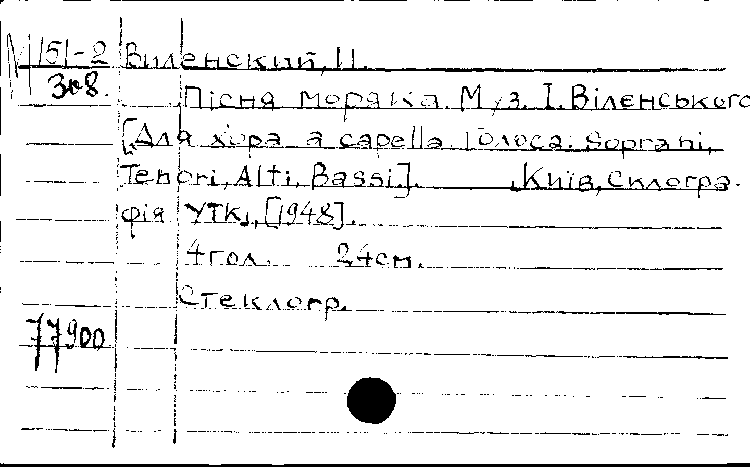 М 151-2 Виленский, И.
Зк8. Пісня моряка. Муз. І. Віленського
[Для хора a capella. Голоса: Soprani,
Tenori, Alti, Bassi.]. Київ, Склогра-
фія УТК, [1948].
4 гол. 24 см.
Стеклогр.
77900